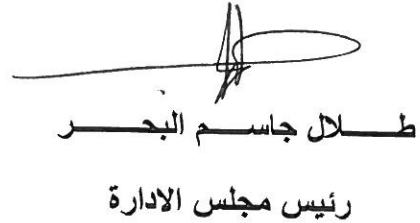 طلال جاسم البحر
رئيس مجلس الادارة